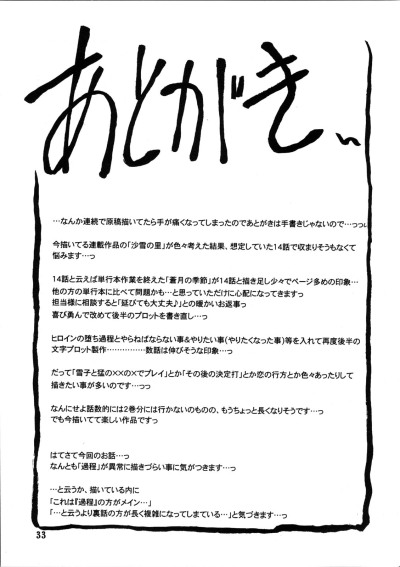 あとがきぃ
…なんか連続で原稿描いてたら手が痛くなってしまったのであとがきは手書きじゃないので…っっぃ
今描いてる連載作品の「沙雪の里」が色々考えた結果、想定していた14話で収まりそうもなくて
悩みます…っ
14話と云えば単行本作業を終えた「蒼月の季節」が14話と描き足し少々でページ多めの印象…
他の方の単行本に比べて問題かも…と思っていただけに心配になってきますっ
担当様に相談すると「延びても大丈夫♪」との暖かいお返事っ
喜び勇んで改めて後半のプロットを書き直し…っ
ヒロインの堕ち過程とやらねばならない事&やりたい事(やりたくなった事)等を入れて再度後半の
文字プロット製作……………数話は伸びそうな印象…っ
だって「雪子と猛の××の×でプレイ」とか「その後の決定打」とか恋の行方とか色々あったりして
描きたい事が多いのです…っっ
なんにせよ話数的には2巻分には行かないものの、もうちょっと長くなりそうです…っ
でも今描いてて楽しい作品ですっ
はてさて今回のお話…っ
なんとも「過程」が異常に描きづらい事に気がつきます…っ
…と云うか、描いている内に
「これは『過程』の方がメイン…」
「…と云うより裏話の方が長く複雑になってしまている…」と気づきます…っ
33